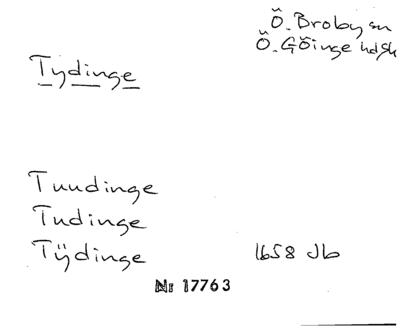 Ö. Broby sn
Ö. Göinge hd
Tydinge
Tuudinge
Tudinge
Tÿdinge 1658 Jb
Nr 17763